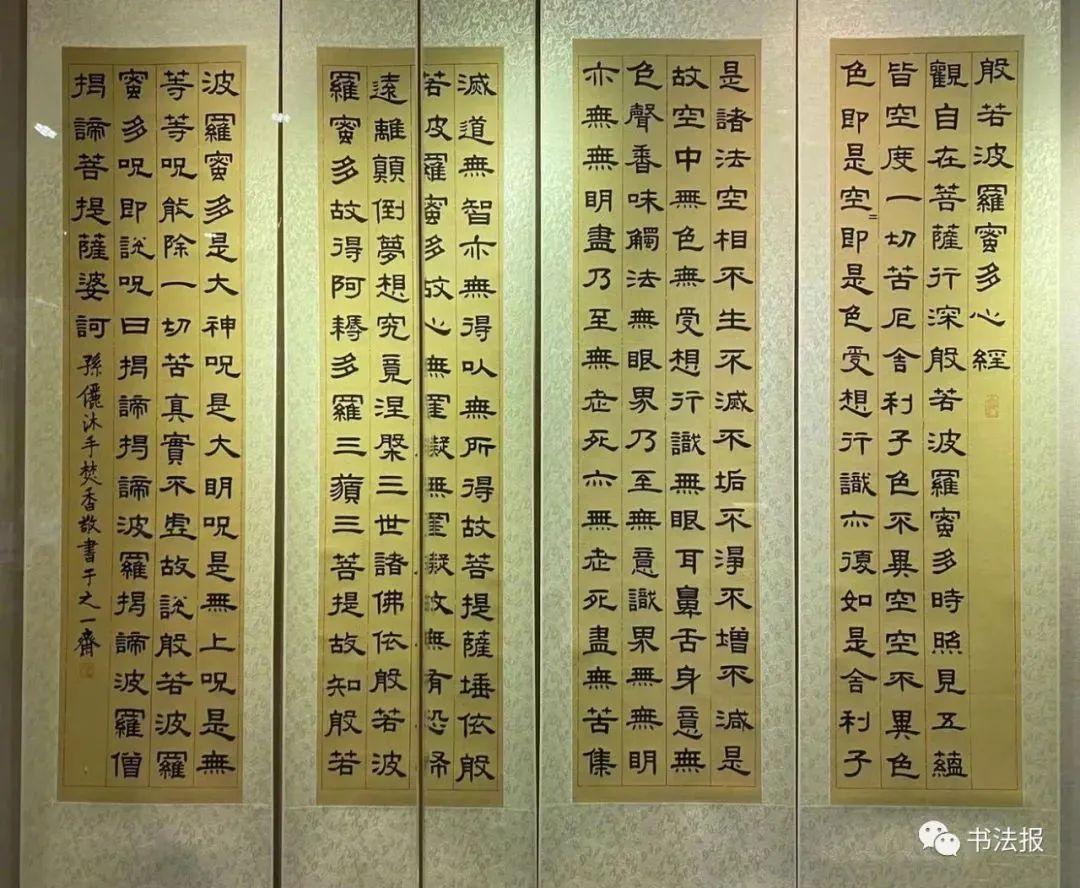 般若波羅蜜多心經
觀自在菩薩行深般若波羅蜜多時照見五蘊
皆空度一切苦厄舍利子色不異空空不異色
色即是空=即是色受想行識亦復如是舍利子
是諸法空相不生不滅不垢不淨不增不減是
故空中無色無受想行識無眼耳鼻舌身意無
色聲香味觸法無眼界乃至無意識界無無明
亦無無明盡乃至無老死亦無老死盡無苦集
滅道無智亦無得以無所得故菩提薩埵依般
若波羅蜜多故心無罣礙無罣礙故無有恐怖
遠離顛倒夢想究竟涅槃三世諸佛依般若波
羅蜜多故得阿耨多羅三藐三菩提故知般若
波羅蜜多是大神呪是大明呪是無上呪是無
等等呪能除一切苦真實不虛故說般若波羅
蜜多呪即說呪曰揭諦揭諦波羅揭諦波羅僧
揭諦菩提薩婆訶
孫儷沐手焚香敬書于之一齋
书法报